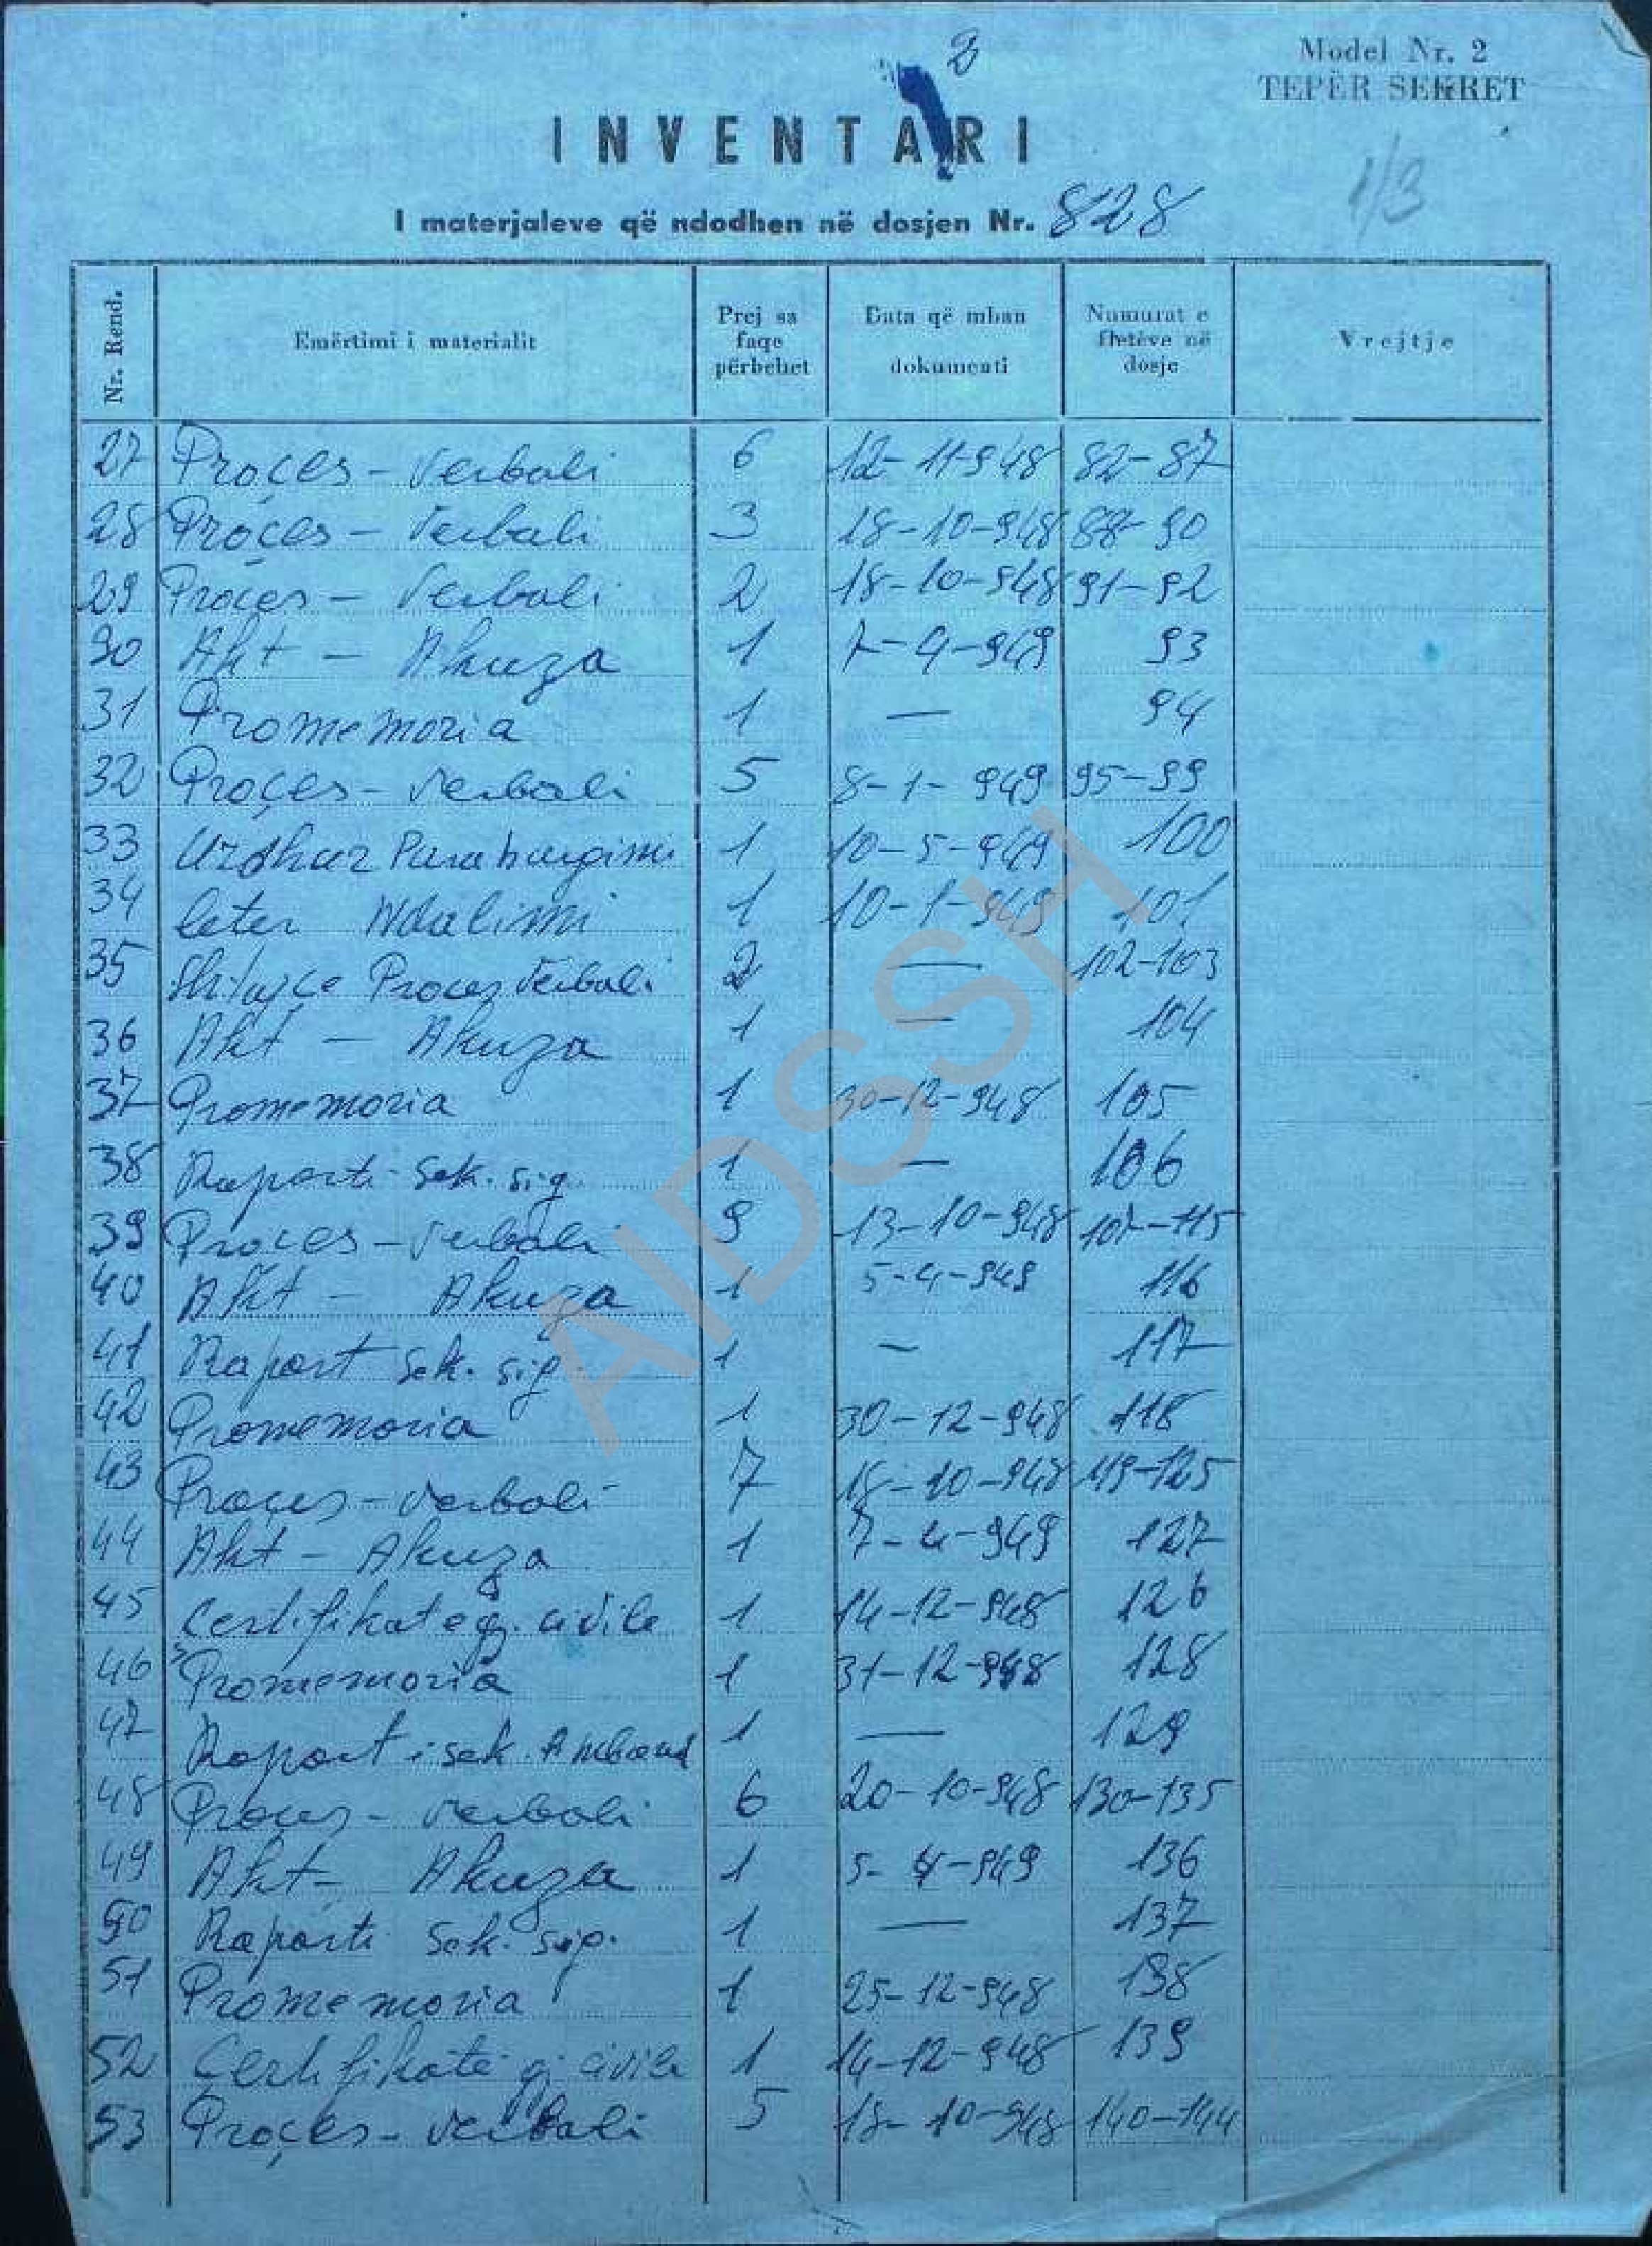 2
Model Nr. 2
TEPËR SEKRET
INVENTARI
1/3
I materjaleve që ndodhen në dosjen Nr. 828
Nr. Rend. Emërtimi i materialit Prej sa faqe përbehet Data që mban dokumenti Numurat e fletëve në dosje Vrejtje
27 Proçes - Verbali 6 12-11-948 82-87
28 Proçes - Verbali 3 18-10-948 88-90
29 Proçes - Verbali 2 18-10-948 91-92
30 Akt - Akuza 1 7-4-949 93
31 Promemoria 1 — 94
32 Proçes - Verbali 5 8-1-949 95-99
33 Urdhur Paraburgimi 1 10-5-949 100
34 leter Ndalimi 1 10-1-949 101
35 Proces Verbali 2 — 102-103
36 Akt - Akuza 1 — 104
37 Promemoria 1 30-12-948 105
38 Raporti Sek. sig. 1 — 106
39 Proces - Verbali 9 13-10-948 107-115
40 Akt - Akuza 1 5-4-949 116
41 Raport Sek. sig. 1 — 117
42 Promemoria 1 30-12-948 118
43 Proçes - Verbali 7 18-10-948 119-125
44 Akt - Akuza 1 7-4-949 127
45 Certifikate gj. civile 1 14-12-948 126
46 Promemoria 1 31-12-948 128
47 Raport i sek. 1 — 129
48 Proçes - Verbali 6 20-10-948 130-135
49 Akt - Akuza 1 5-4-949 136
50 Raporti Sek. sig. 1 — 137
51 Promemoria 1 25-12-948 138
52 Çertifikate gj. civile 1 14-12-948 139
53 Proçes - Verbali 5 18-10-948 140-144
AIDSSH